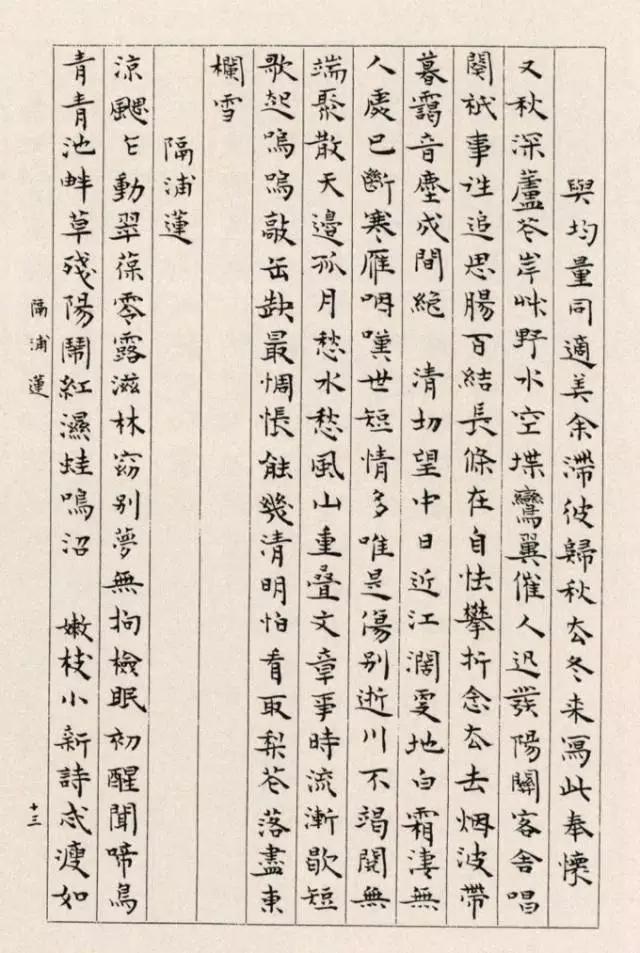 與均量同適美余滯彼歸秋厺冬来寫此奉懷
又秋深蘆苍岸艸野水空堞鸞翼催人迟發陽關客舍唱
闋祇事讠追思腸百結長條在自怯攀折念厺去烟波帶
暮靄音塵成間絶　清切望中日近江濶雯地白霜淒無
人處已斷寒雁咽嘆世短情多唯是傷别逝川不竭閒無
端聚散天邉孤月愁水愁風山重叠文章事時流漸歇短
歌起嗚嗚敲缶缺最惆悵能幾清明怕看取梨苍落盡東
欄雪
隔浦蓮
涼颸乍動翠葆零露滋林窈别夢無拘檢眠初醒聞啼鳥
青青池畔草殘陽鬧紅濕蛙鳴沼　嫩枝小新詩忒瘦如
隔浦蓮
十三